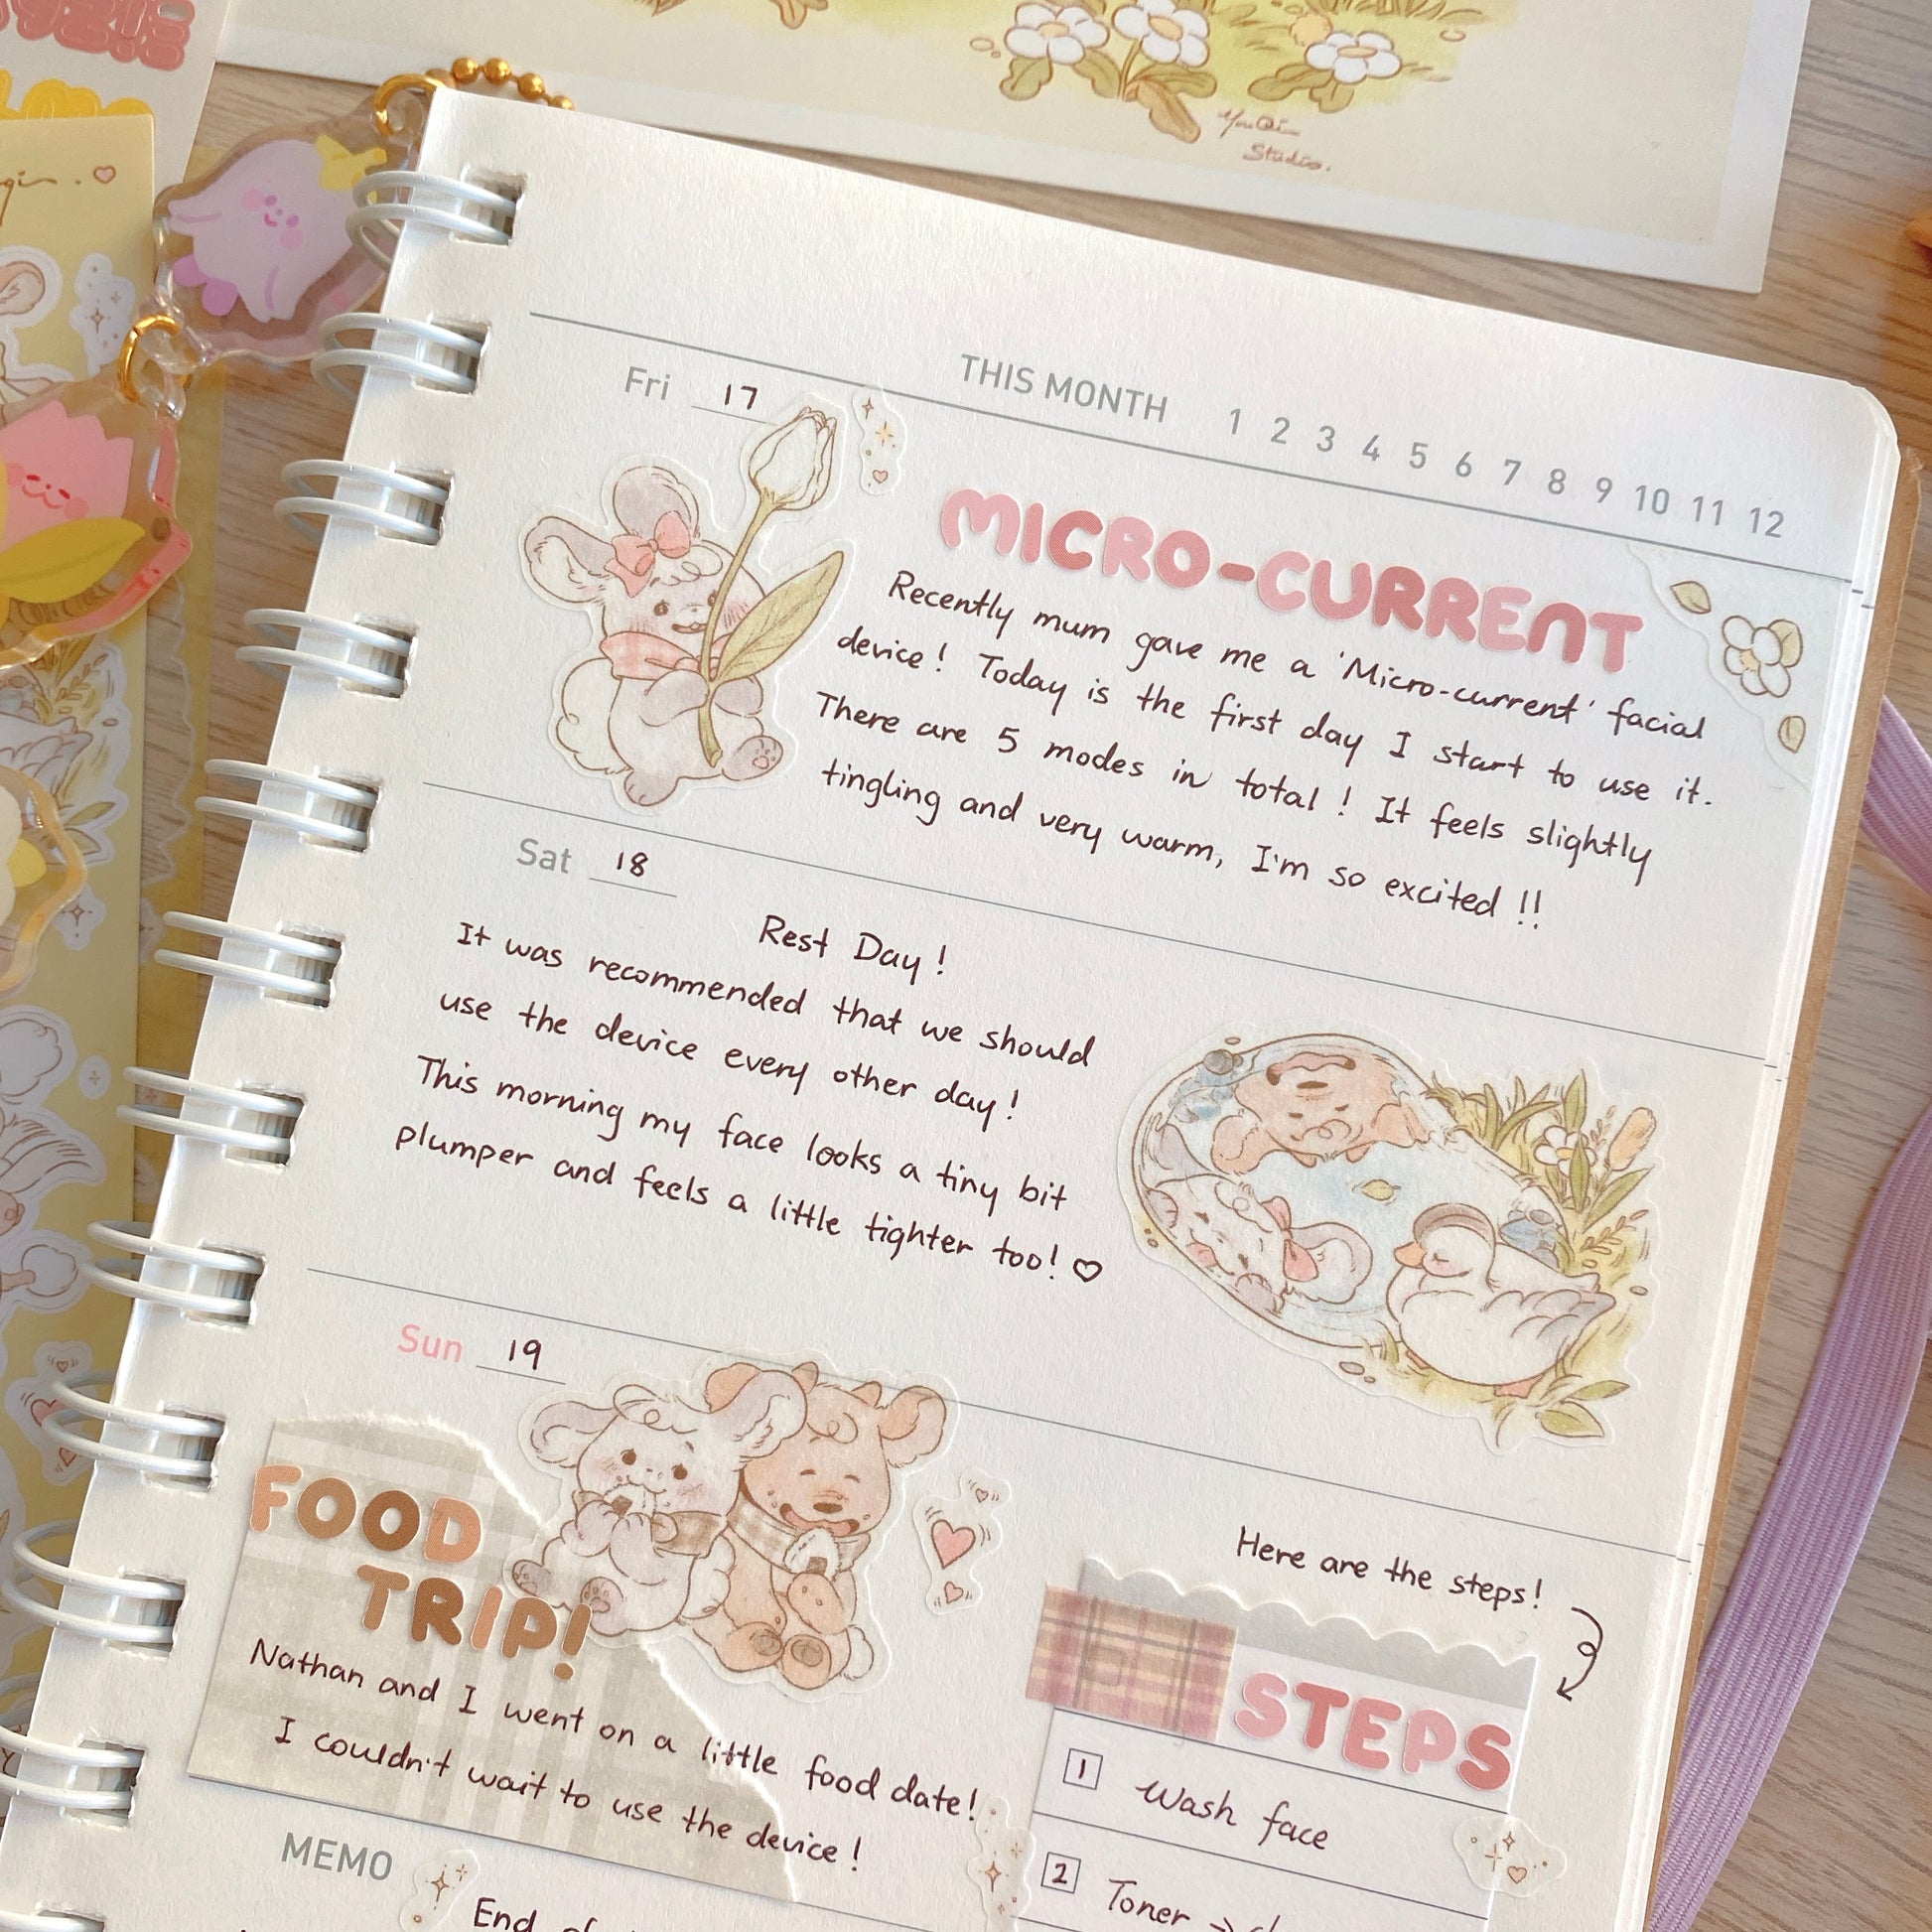 YouQi
Studio.
THIS MONTH 1 2 3 4 5 6 7 8 9 10 11 12
Fri 17
MICRO-CURRENT
Recently mum gave me a 'Micro-current' facial
device! Today is the first day I start to use it.
There are 5 modes in total! It feels slightly
tingling and very warm, I'm so excited!!
Sat 18
Rest Day!
It was recommended that we should
use the device every other day!
This morning my face looks a tiny bit
plumper and feels a little tighter too! ♡
Sun 19
FOOD
TRIP!
Nathan and I went on a little food date!
I couldn't wait to use the device!
Here are the steps!
STEPS
1 Wash face
2 Toner →
MEMO
End of